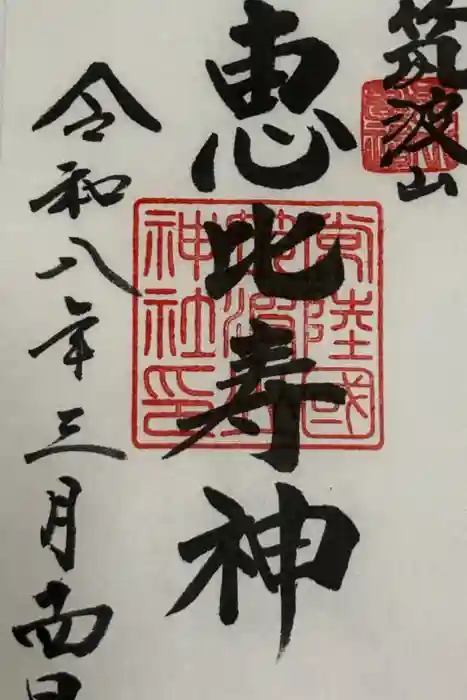 筑波山
恵比寿神
常陸國
神社印
令和八年三月四日